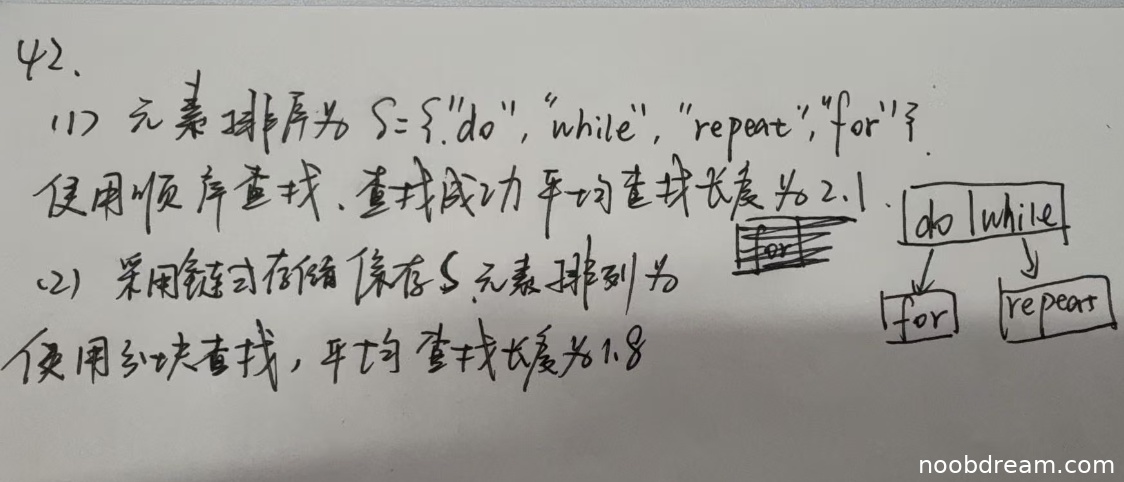 42、
(1) 元素排序为 S={"do", "while", "repeat", "for"}.
使用顺序查找、查找成功平均查找长度为2.1.
do while
for
(2) 采用链式存储保存S,元素排列为
for repeat
使用分块查找，平均查找长度为1.8
noobdream.com